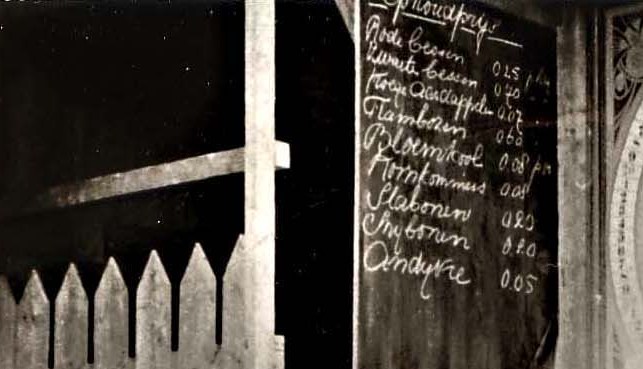 Roode bessen 0.25 p kg
Zwarte bessen 0.40 "
Vroege Aardappelen 0.07 "
Frambozen 0.60 "
Bloemkool 0.08 p st
Komkommers 0.08
Slaboonen 0.20
Snyboonen 0.20
Andyvie 0.05